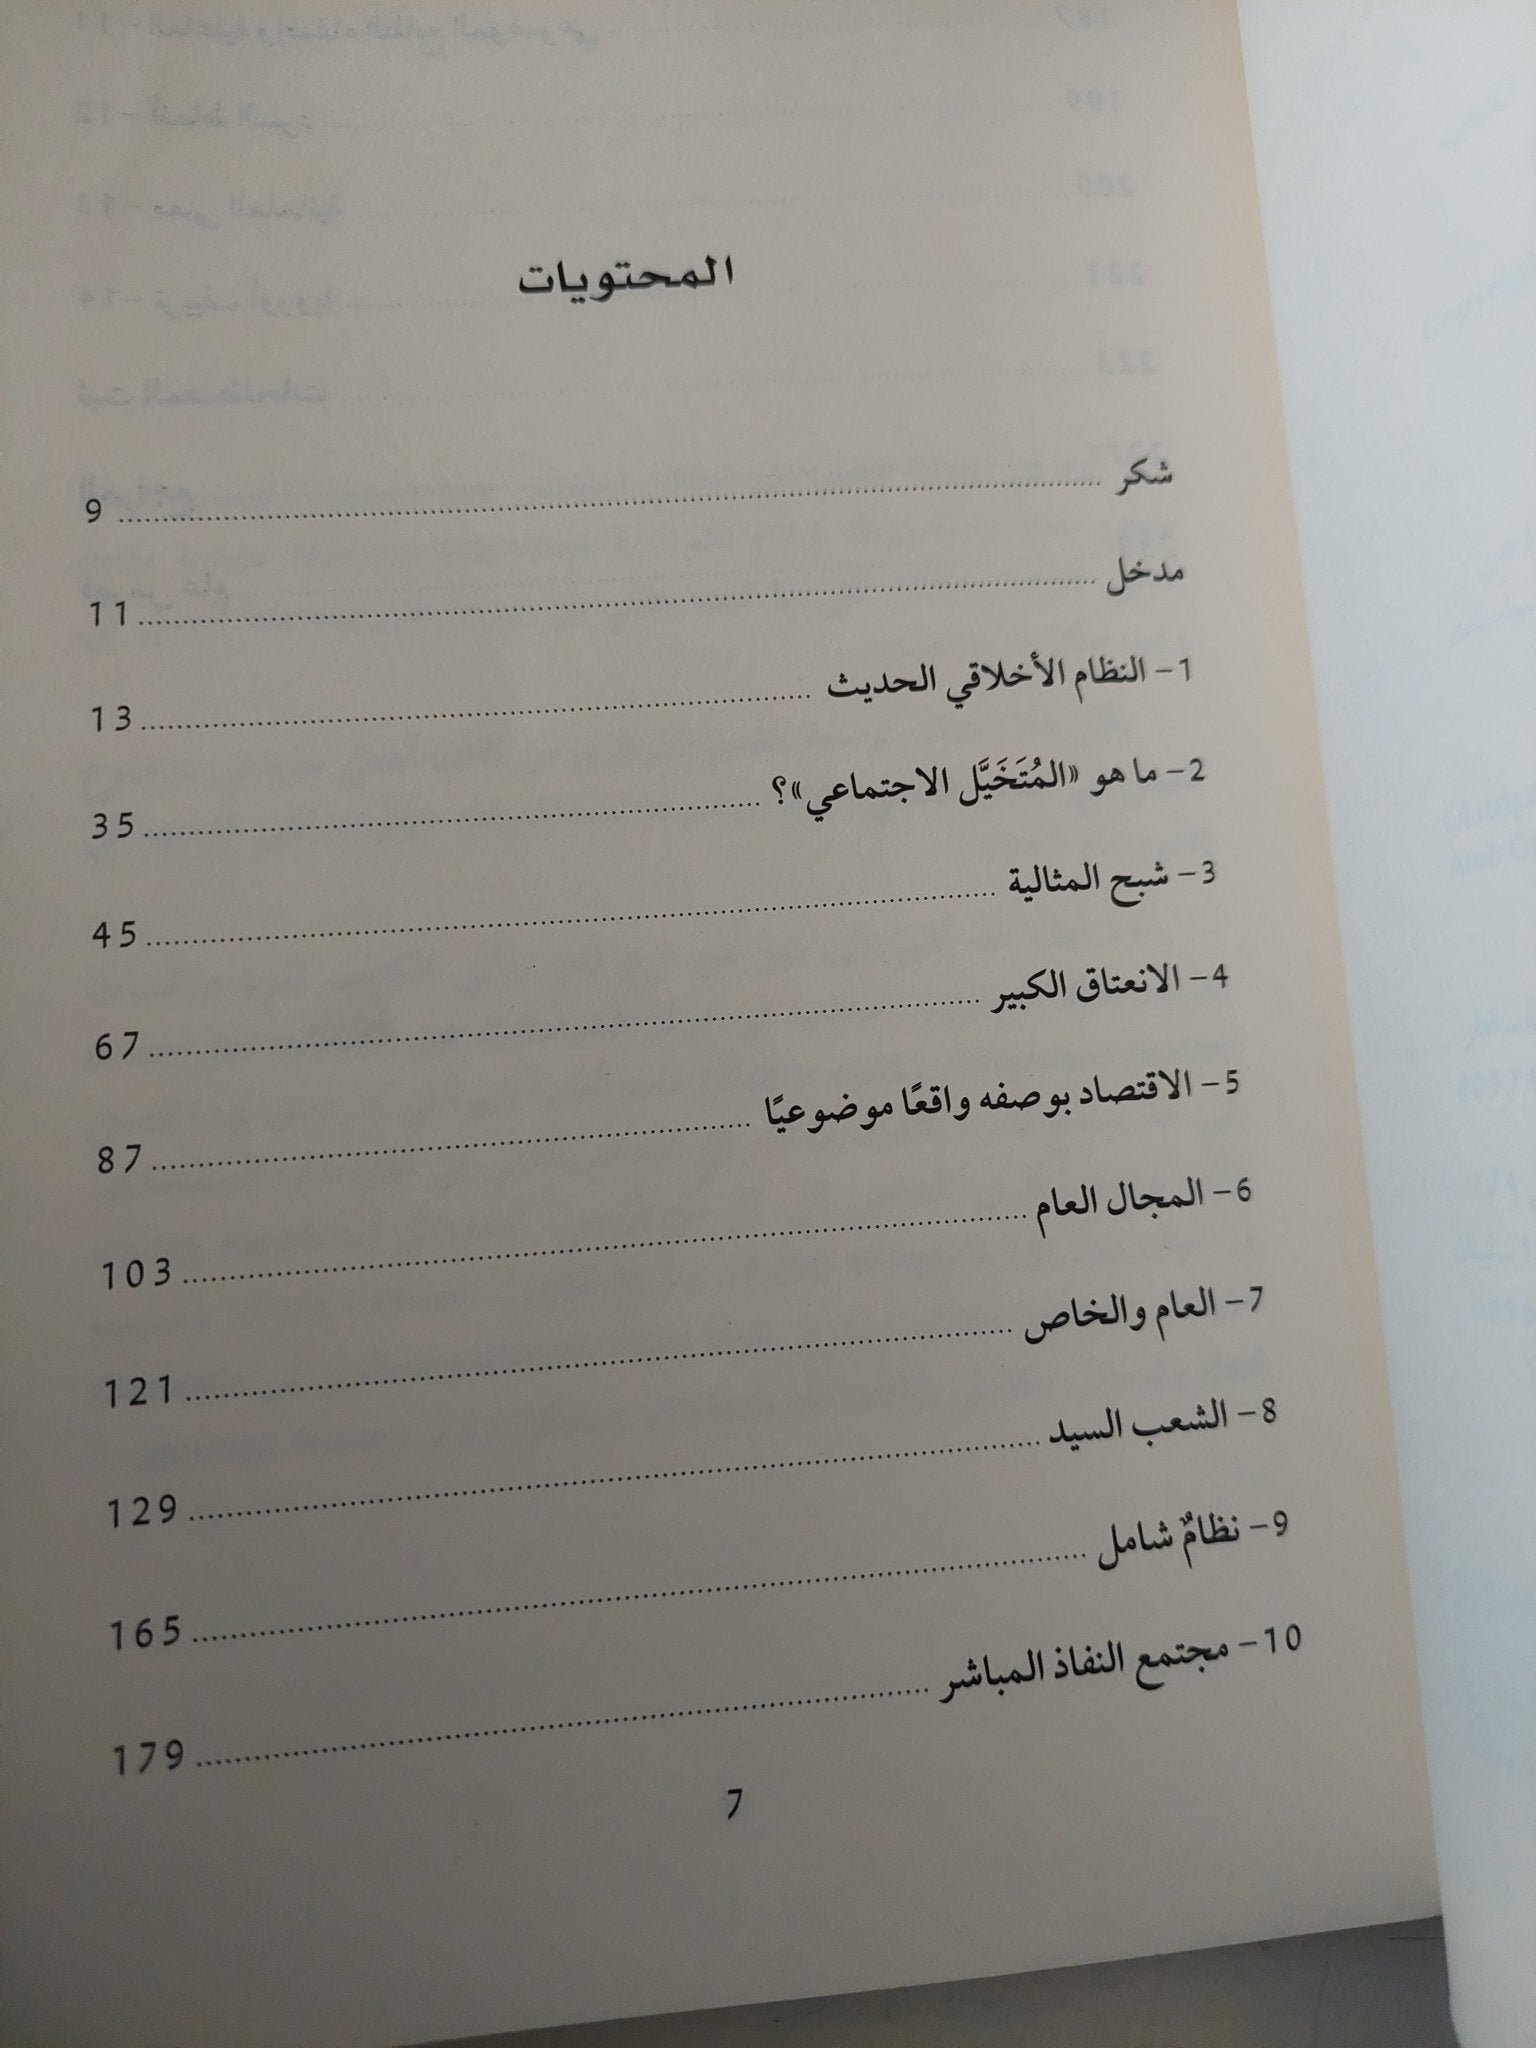 المحتويات
شكر ........ 9
مدخل ........ 11
1- النظام الأخلاقي الحديث ........ 13
2- ما هو «المُتَخَيَّل الاجتماعي»؟ ........ 35
3- شبح المثالية ........ 45
4- الانعتاق الكبير ........ 67
5- الاقتصاد بوصفه واقعًا موضوعيًا ........ 87
6- المجال العام ........ 103
7- العام والخاص ........ 121
8- الشعب السيد ........ 129
9- نظامٌ شامل ........ 165
10- مجتمع النفاذ المباشر ........ 179
7